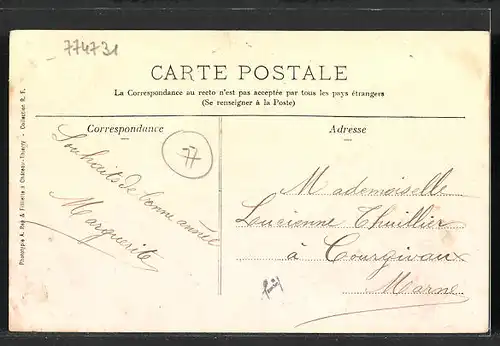 774731
CARTE POSTALE
La Correspondance au recto n'est pas acceptée par tous les pays étrangers
(Se renseigner à la Poste)
Correspondance
77
Souhaits de bonne année
Marguerite
Adresse
Mademoiselle
Lucienne Thuillier
à Courgivaux
Marne
Phototypie A. Rep & Filliette à Château-Thierry - Collection R. F.